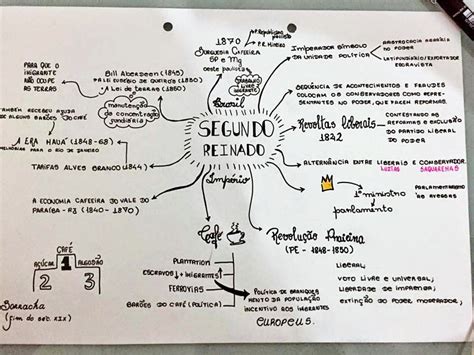 1870
P. Republicano
paulista
P.R. Mineiro
BURGUESIA CAFEEIRA
SP e Mg
oeste paulista
TRABALHO
LIVRE
IMIGRANTE
Brasil
IMPERADOR SÍMBOLO
DA UNIDADE POLÍTICA
ARISTROCRACIA AGRÁRIA
NO PODER
LATIFÚNDIO/EXPORTADOR
ESCRAVISTA
PARA QUE O
IMIGRANTE
NÃO OCUPE
AS TERRAS
Bill Aberdeen (1845)
A Lei EUSÉBIO DE QUEIRÓS (1850)
A Lei de terras (1850)
manutenção
de concentração
fundiária
TAMBÉM RECEBEU AJUDA
DE ALGUNS BARÕES DO CAFÉ
A ERA MAUÁ (1848-68)
MELHORIAS PARA O RIO DE JANEIRO
TARIFAS ALVES BRANCO (1844)
A ECONOMIA CAFEEIRA DO VALE DO
PARAÍBA - RJ (1840 - 1870)
SEGUNDO
REINADO
Império
SEQUÊNCIA DE ACONTECIMENTOS E FRAUDES
COLOCAM OS CONSERVADORES COMO REPRE-
SENTANTES NO PODER, QUE FAZEM REFORMAS.
Revoltas liberais
1842
CONTESTANDO AS
REFORMAS E EXCLUSÃO
DO PARTIDO LIBERAL
DO PODER
ALTERNÂNCIA ENTRE LIBERAIS E CONSERVADOR.
LUZIAS SAQUAREMAS
1º ministro
parlamento
PARLAMENTARISMO
ÀS AVESSAS
Café
PLANTATION
ESCRAVOS IMIGRANTES
FERROVIAS
BARÕES DO CAFÉ (POLÍTICA)
POLÍTICA DE BRANQUEA
MENTO DA POPULAÇÃO
INCENTIVO AOS IMIGRANTES
EUROPEUS.
Revolução Praieira
(PE - 1848-1850)
LIBERAL,
VOTO LIVRE E UNIVERSAL,
LIBERDADE DE IMPRENSA,
EXTINÇÃO DO PODER MODERADOR,
CAFÉ
AÇÚCAR 1 ALGODÃO
2 3
Borracha
(fim do séc. XIX)